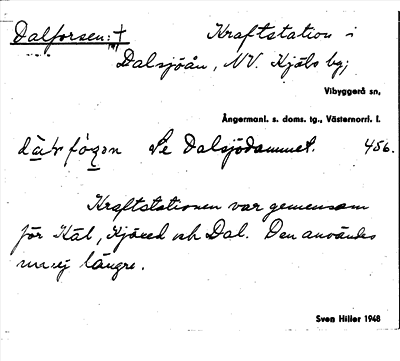 Dalforsen: † Kraftstation i
Dalsjöån, NV. Kjäls by;
Vibyggerå sn,
Ångermanl. s. doms. tg., Västernorrl. l.
Se Dalsjödammet. 456.
Kraftstationen var gemensam
för Käl, Kjäxed och Dal. Den användes
nu ej längre.
Sven Hiller 1948